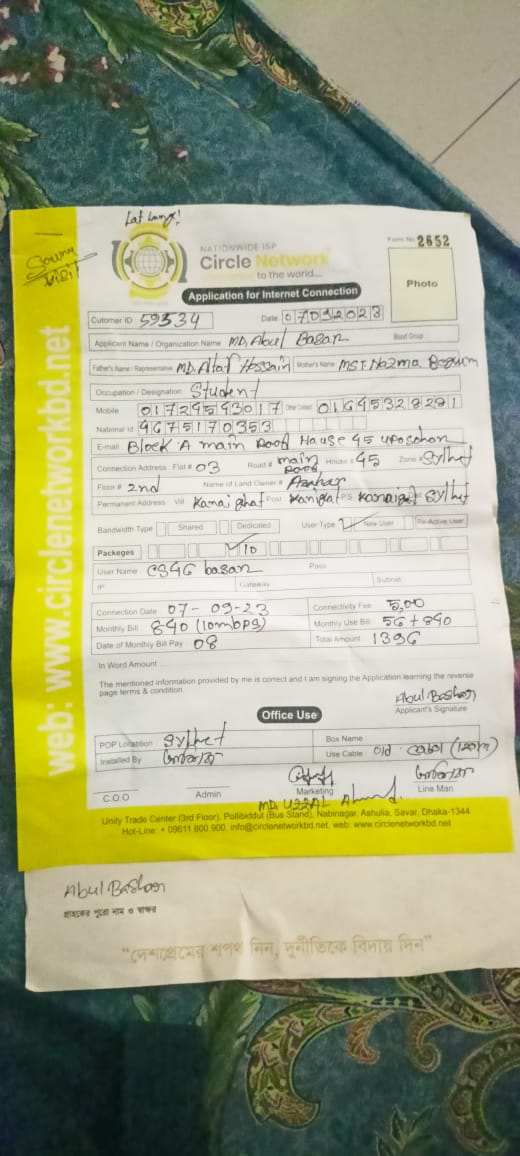 Lat Long!
NATIONWIDE ISP
Circle Network
to the world....
Form No 2652
Photo
Application for Internet Connection
Cutomer ID 59334 Date 07032023
Applicant Name / Organization Name MD, Abul Basar Blood Group
Father's Name / Representative MD. Altaf Hossain Mother's Name MST. Nazma Begum
Occupation / Designation Student
Mobile 01729593017 Other Contact 01645328281
National Id 9675170353
E-mail Block A main Road House 45 uposohon
Connection Address Flat # 03 Road # main Road House # 45 Zone # Sylhet
Floor # 2nd Name of Land Owner #
Permanent Address Vill Kanaighat Post P.S Sylhet
Bandwidth Type Shared Dedicated User Type New User Re-Active User
Packages 10
User Name CS4G basan Pass
IP Gateway Subnet
Connection Date 07-09-23 Connectivity Fee 5,00
Monthly Bill 840 (10mbps) Monthly Use Bill 56 + 840
Date of Monthly Bill Pay 08 Total Amount 1396
In Word Amount
The mentioned information provided by me is correct and I am signing the Application learning the reverse
page terms & condition.
Abul Bashar
Applicant's Signature
Office Use
POP Locatiion Sylhet Box Name
Installed By Use Cable old cabol (120m)
C.O.O Admin Marketing Line Man
MD. UZZAL Ahmed.
Unity Trade Center (3rd Floor), Pollibiddut (Bus Stand), Nabinagar, Ashulia, Savar, Dhaka-1344
Hot-Line: + 09611 800 900, info@circlenetworkbd.net, web: www.circlenetworkbd.net
web: www.circlenetworkbd.net
Abul Bashar
গ্রাহকের পুরো নাম ও স্বাক্ষর
“দেশপ্রেমের শপথ নিন, দুর্নীতিকে বিদায় দিন”